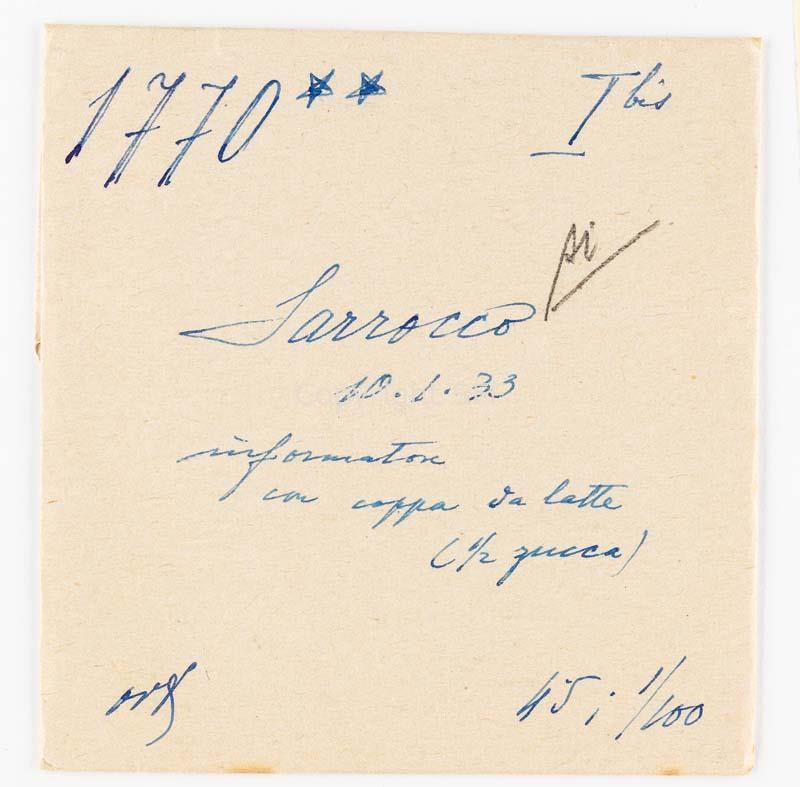 1770** I bis
si
Sarrocco
10.1.33
informatore
con coppa da latte
(1/2 zucca)
45; 1/100